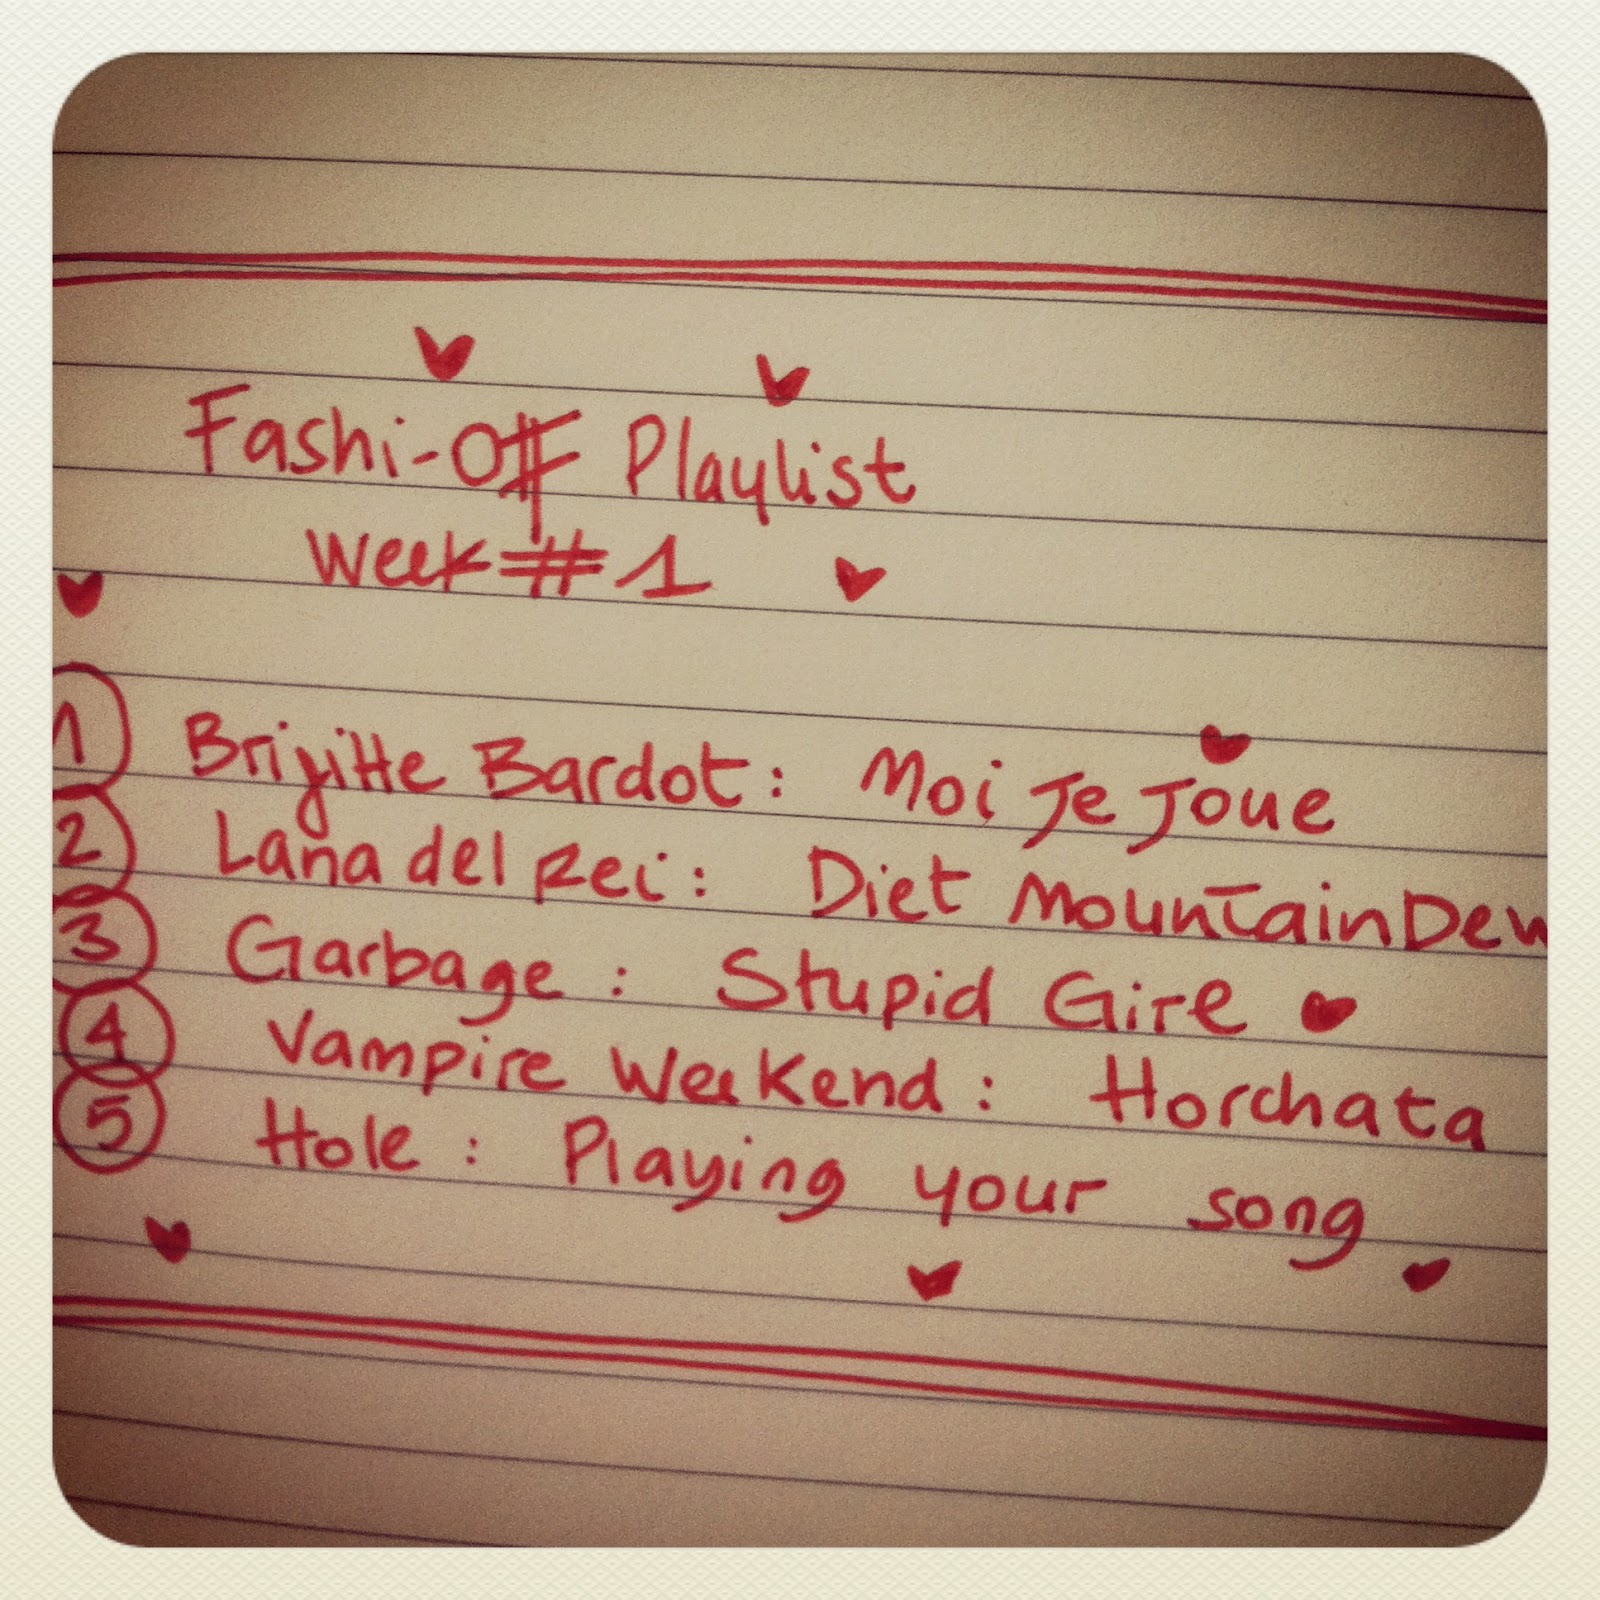 Fashi-Off Playlist
Week #1
1 Brigitte Bardot: Moi Je Joue
2 Lana del Rei: Diet Mountain Dew
3 Garbage: Stupid Girl
4 Vampire Weekend: Horchata
5 Hole: Playing your song